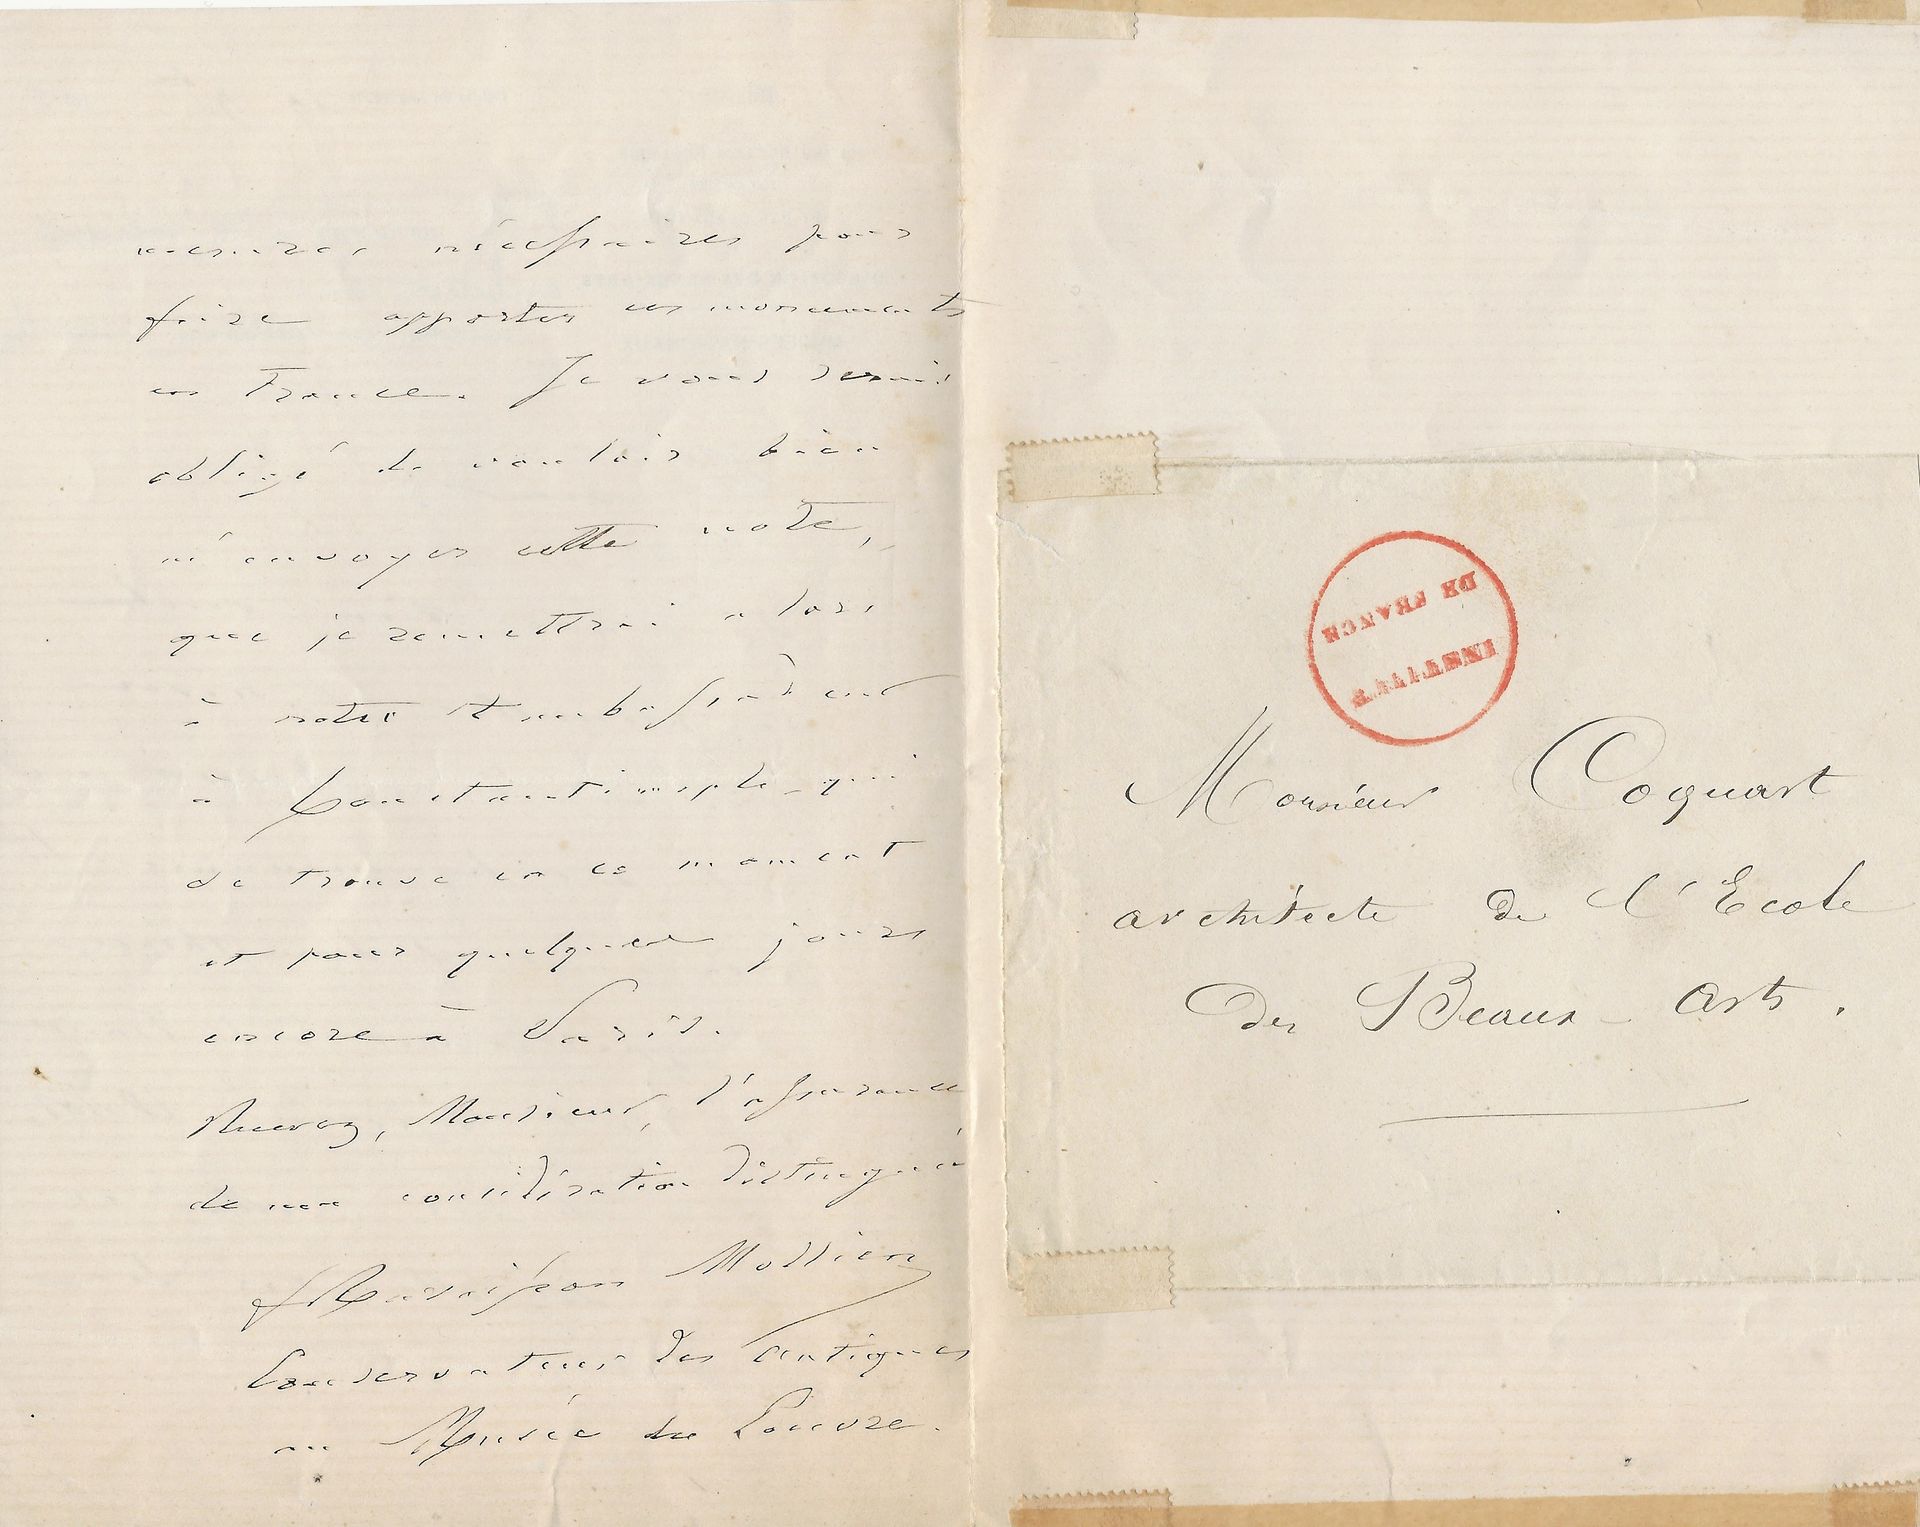 mesures nécessaires pour
faire apporter ces monuments
en France. Je vous serais
obligé de vouloir bien
m'envoyer cette note,
que je remettrai alors
à notre Ambassadeur
à Constantinople qui
se trouve en ce moment
et pour quelques jours
encore à Paris.
Recevez, Monsieur, l'assurance
de ma considération distinguée
f Ravaisson Mollien
Conservateur des Antiques
au Musée du Louvre.
INSTITUT
DE FRANCE
Monsieur Coquart
architecte de l'Ecole
des Beaux-arts.